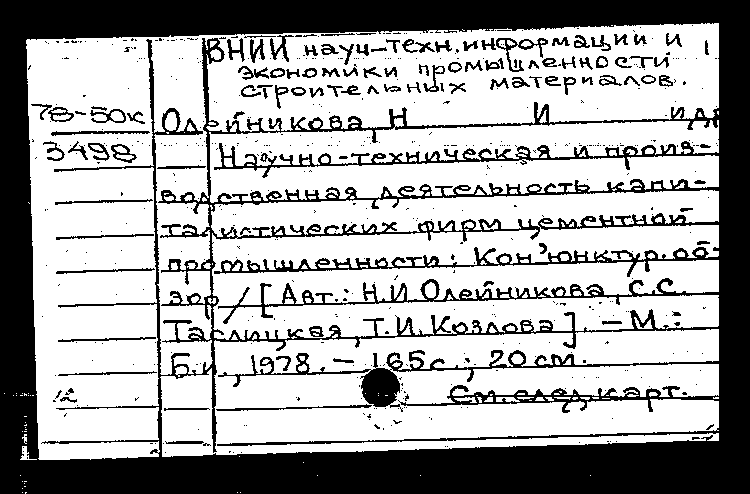 ВНИИ науч-техн. информации и
экономики промышленности
строительных материалов.
78-50к Олейникова, Н И и др
3498 Научно-техническая и произ-
водственная деятельность капи-
талистических фирм цементной
промышленности: Кон'юнктур. об-
зор / [Авт.: Н.И Олейникова, С.С.
Таслицкая, Т.И. Козлова]. — М.:
Б.и., 1978. — 165 с.; 20 см.
12 См. след. карт.